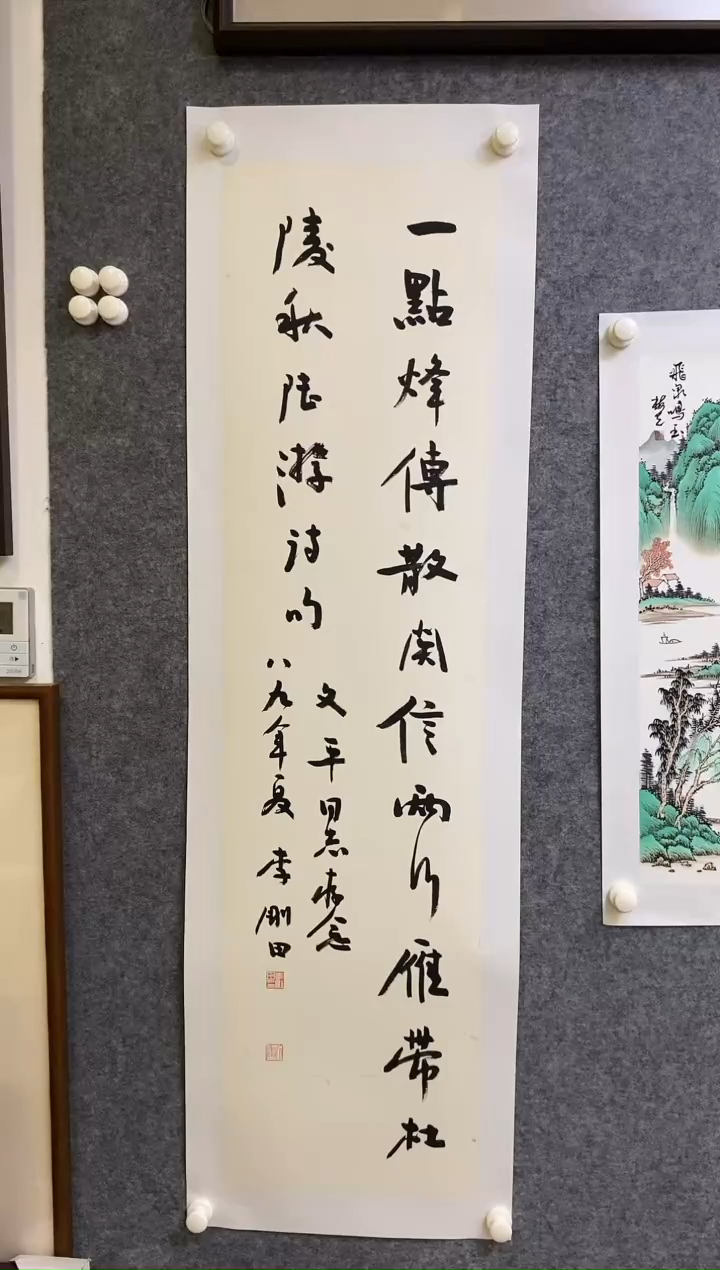 一點烽傳散関信兩行雁帶杜
陵秋陸游詩句
文平同志存念
八九年夏李剛田
飛泉鳴玉